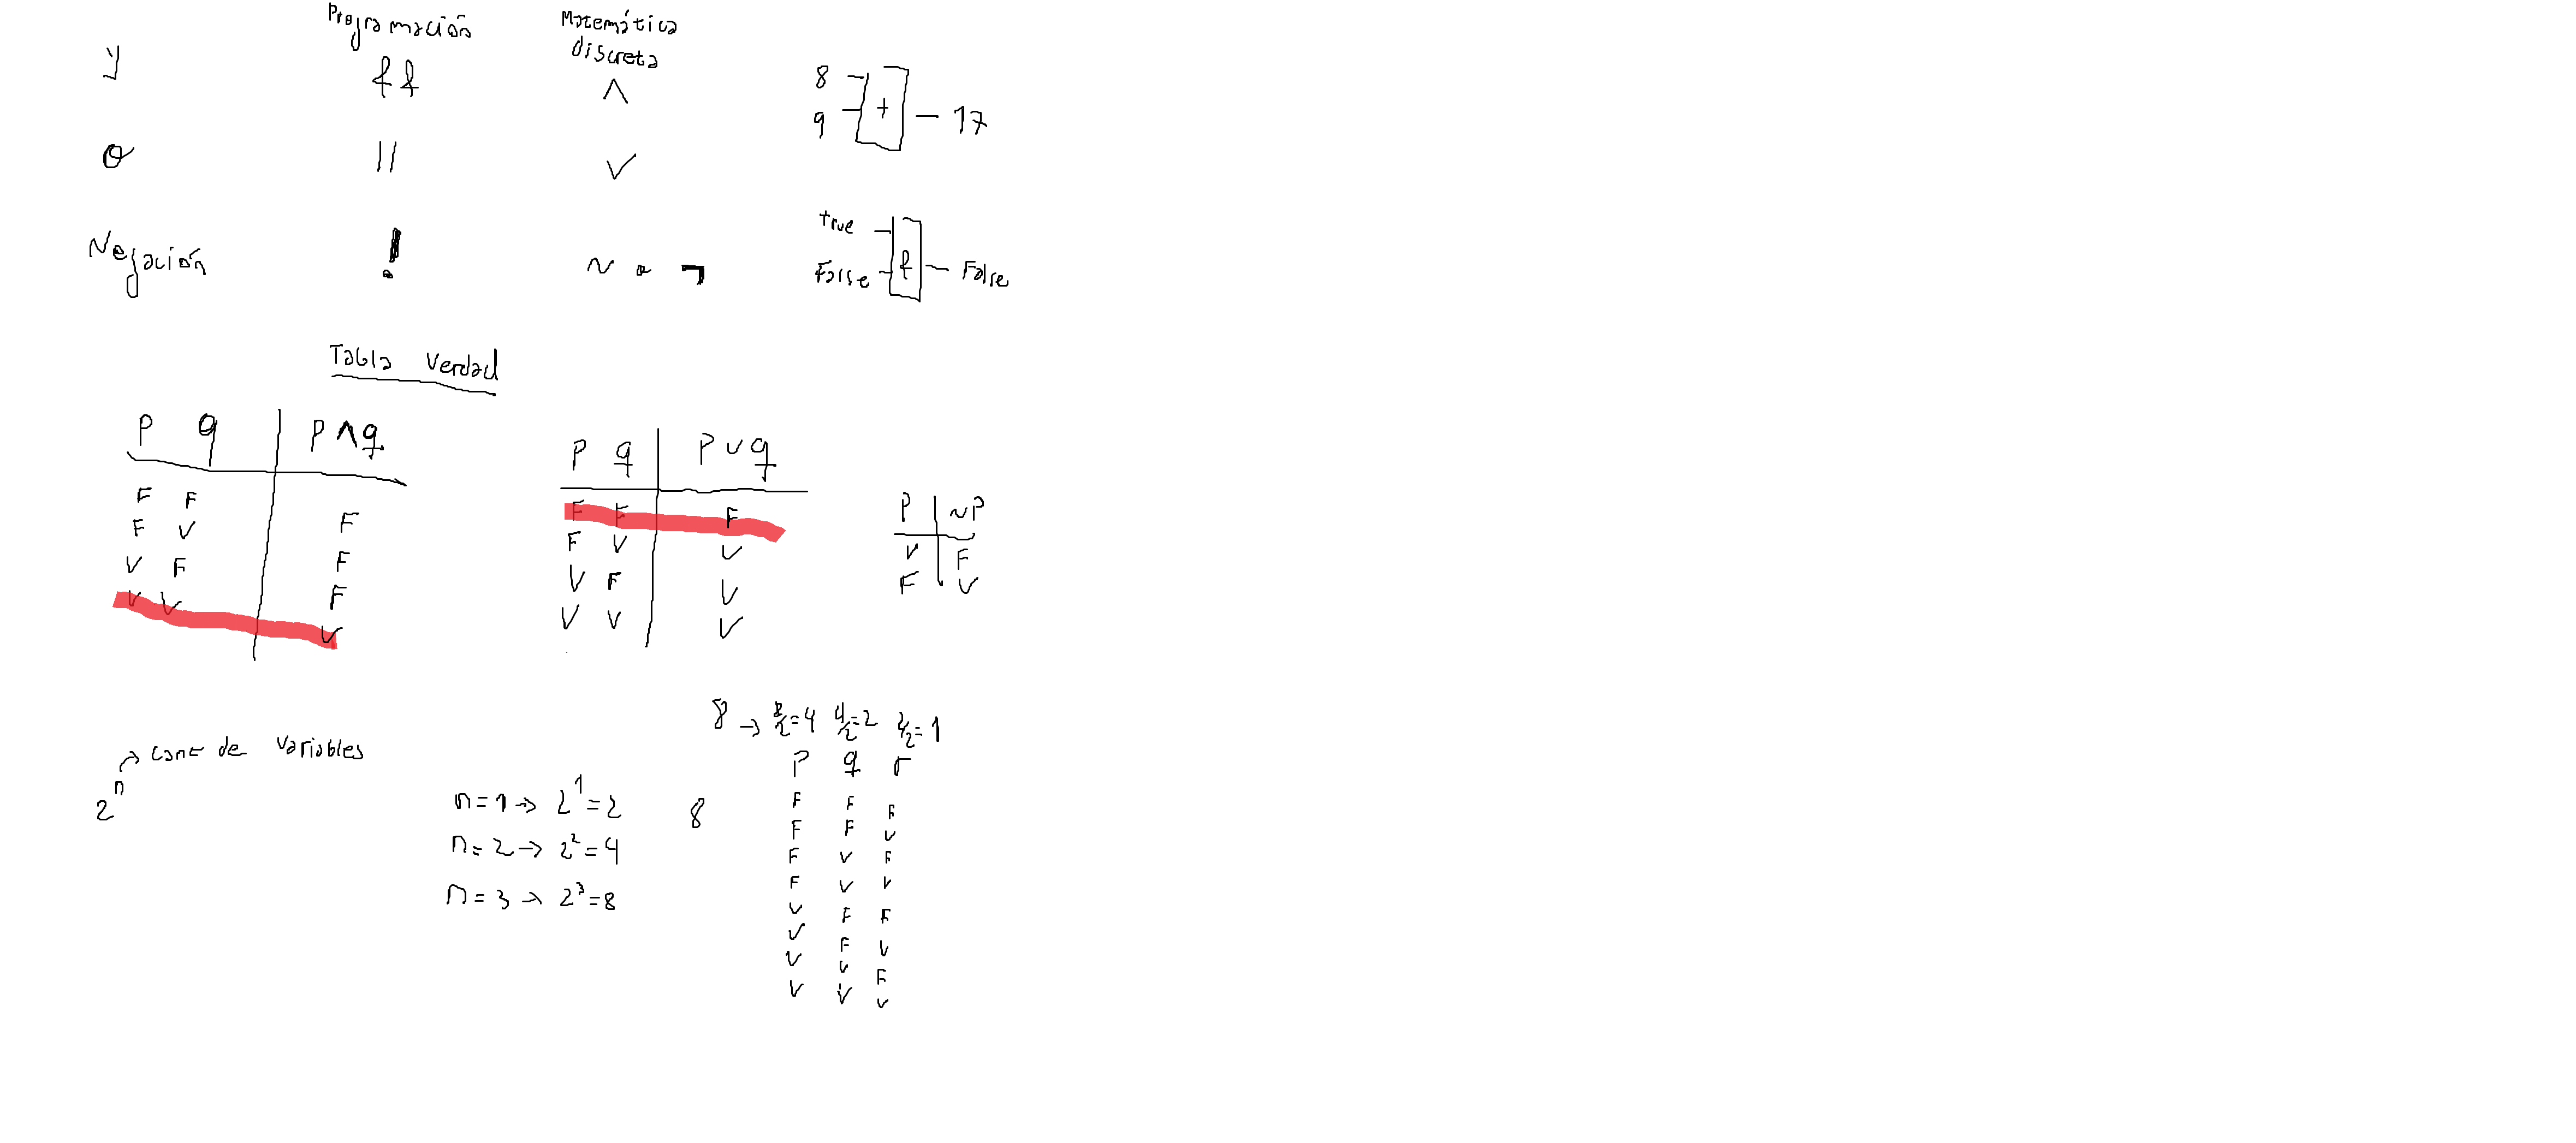 Programación Matemática discreta
y && ∧
o || ∨
Negación ! ~ o ¬
8
9 + — 17
true
False & — False
Tabla Verdad
p q | p ∧ q
F F | F
F V | F
V F | F
V V | V
p q | p ∨ q
F F | F
F V | V
V F | V
V V | V
P | ~P
V | F
F | V
2^n → cant de variables
n = 1 → 2^1 = 2
n = 2 → 2^2 = 4
n = 3 → 2^3 = 8
8 → 8/2 = 4 4/2 = 2 2/2 = 1
8
p q r
F F F
F F V
F V F
F V V
V F F
V F V
V V F
V V V